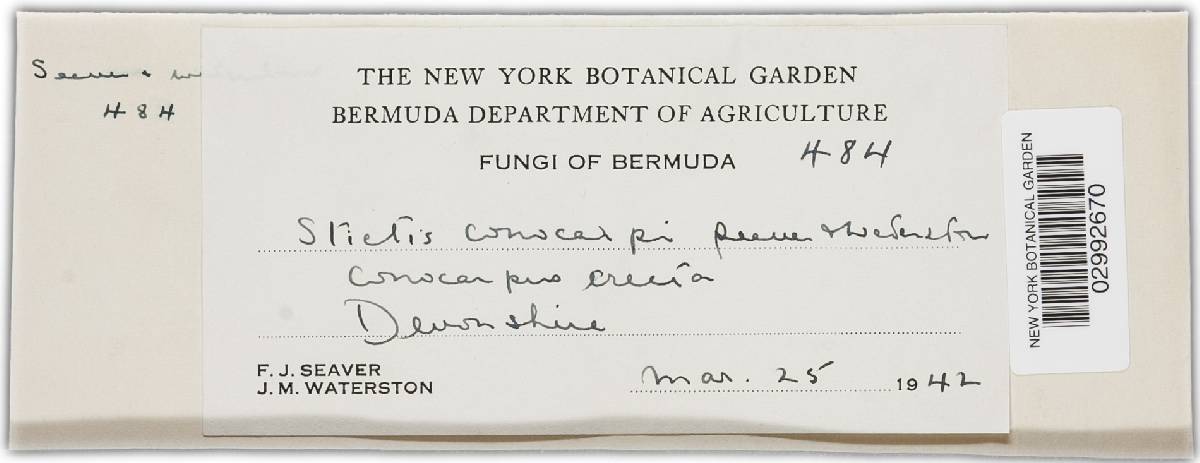 Seaver & Waterston
484
THE NEW YORK BOTANICAL GARDEN
BERMUDA DEPARTMENT OF AGRICULTURE
FUNGI OF BERMUDA 484
Stictis conocarpi Seaver & Waterston
Conocarpus erecta
Devonshire
F. J. SEAVER
J. M. WATERSTON
Mar. 25 1942
NEW YORK BOTANICAL GARDEN
02992670